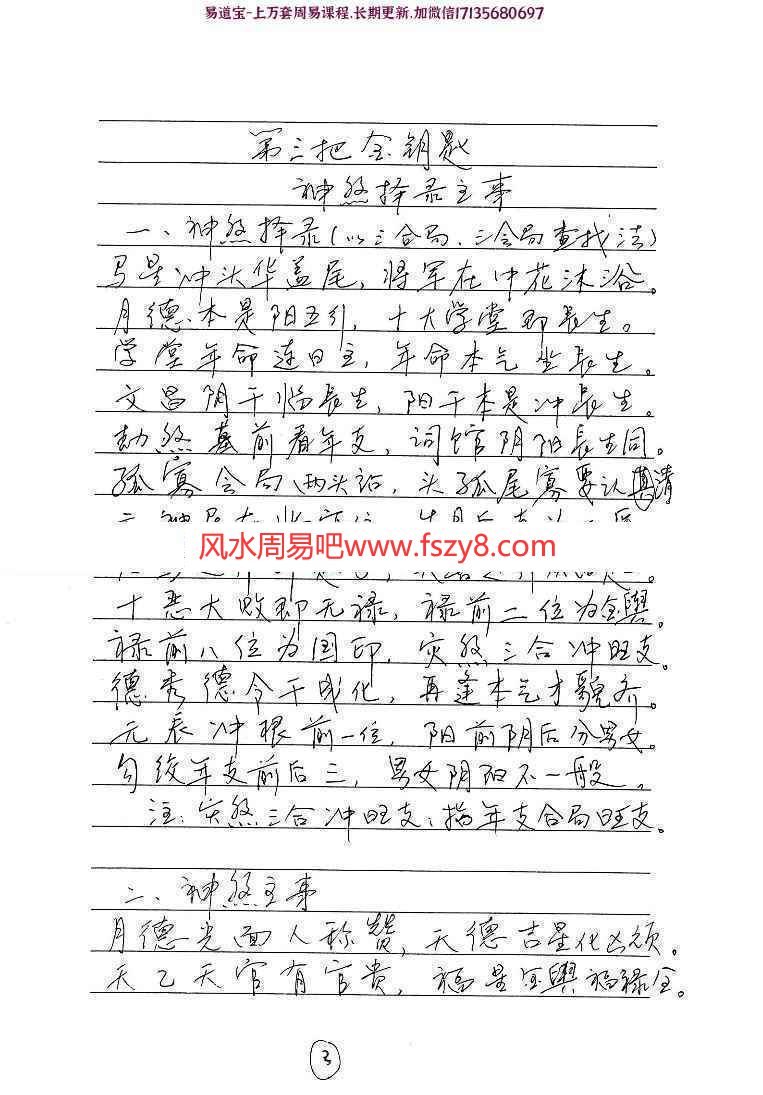 易道宝-上万套周易课程.长期更新.加微信17135680697
第三把金钥匙
神煞择录主事
一、神煞择录(以三合局、三会局查找法)
马星冲头华盖尾,将军在中花沐浴。
月德本是阳五引,十大学堂即長生。
学堂年命连日主,年命本气坐長生。
文昌阴干临長生,阳干本是冲長生。
劫煞墓前看年支,词馆阴阳長生同。
孤寡会局两头话,头孤尾寡要认真清
风水周易吧www.fszy8.com
十恶大败即无禄,禄前二位为金舆。
禄前八位为国印,灾煞三合冲旺支。
德秀德令干成化,再逢本气才貌齐。
元辰冲根前一位,阳前阴后分男女。
勾绞年支前后三,男女阴阳不一般。
注:灾煞三合冲旺支:指年支合局旺支。
二、神煞主事
月德光面人称赞,天德吉星化凶顽。
天乙天官有官贵,福星金舆福禄全。
3